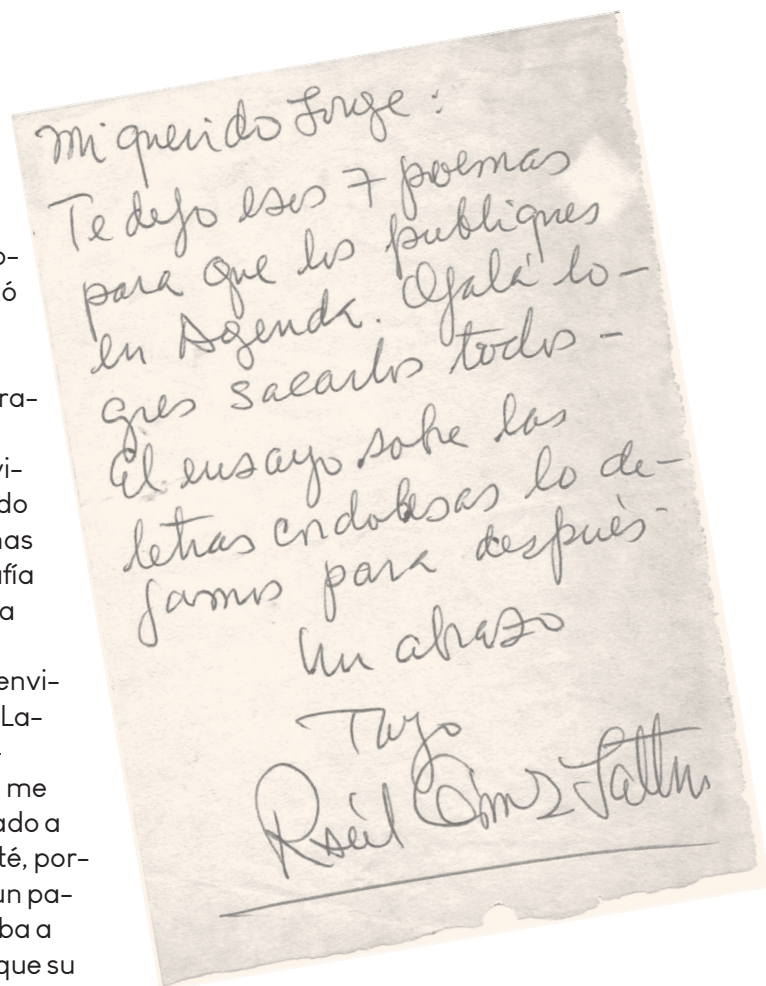 o-
ó
ra-
vi-
do
nas
afía
a
envi-
La-
-
me
ado a
té, por-
un pa-
ba a
que su
Mi querido Jorge:
Te dejo esos 7 poemas
para que los publiques
en Agenda. Ojalá lo-
gres sacarlos todos -
El ensayo sobre las
letras cordobesas lo de-
jamos para después-
Un abrazo
Tuyo
Raúl Gómez Jattin